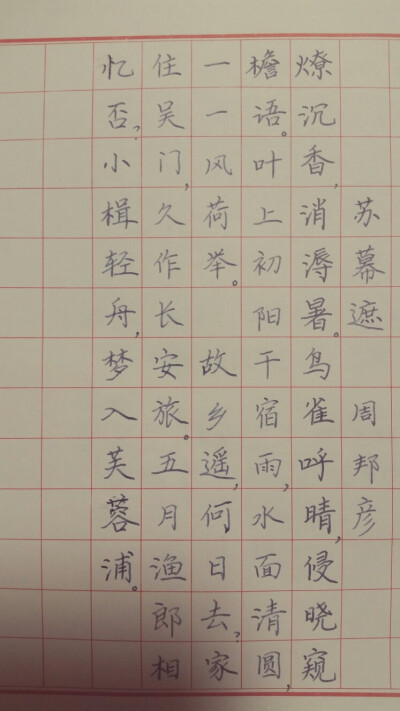 苏幕遮 周邦彦
燎沉香,消溽暑。鸟雀呼晴,侵晓窥
檐语。叶上初阳干宿雨,水面清圆,
一一风荷举。 故乡遥,何日去?家
住吴门,久作长安旅。五月渔郎相
忆否?小楫轻舟,梦入芙蓉浦。